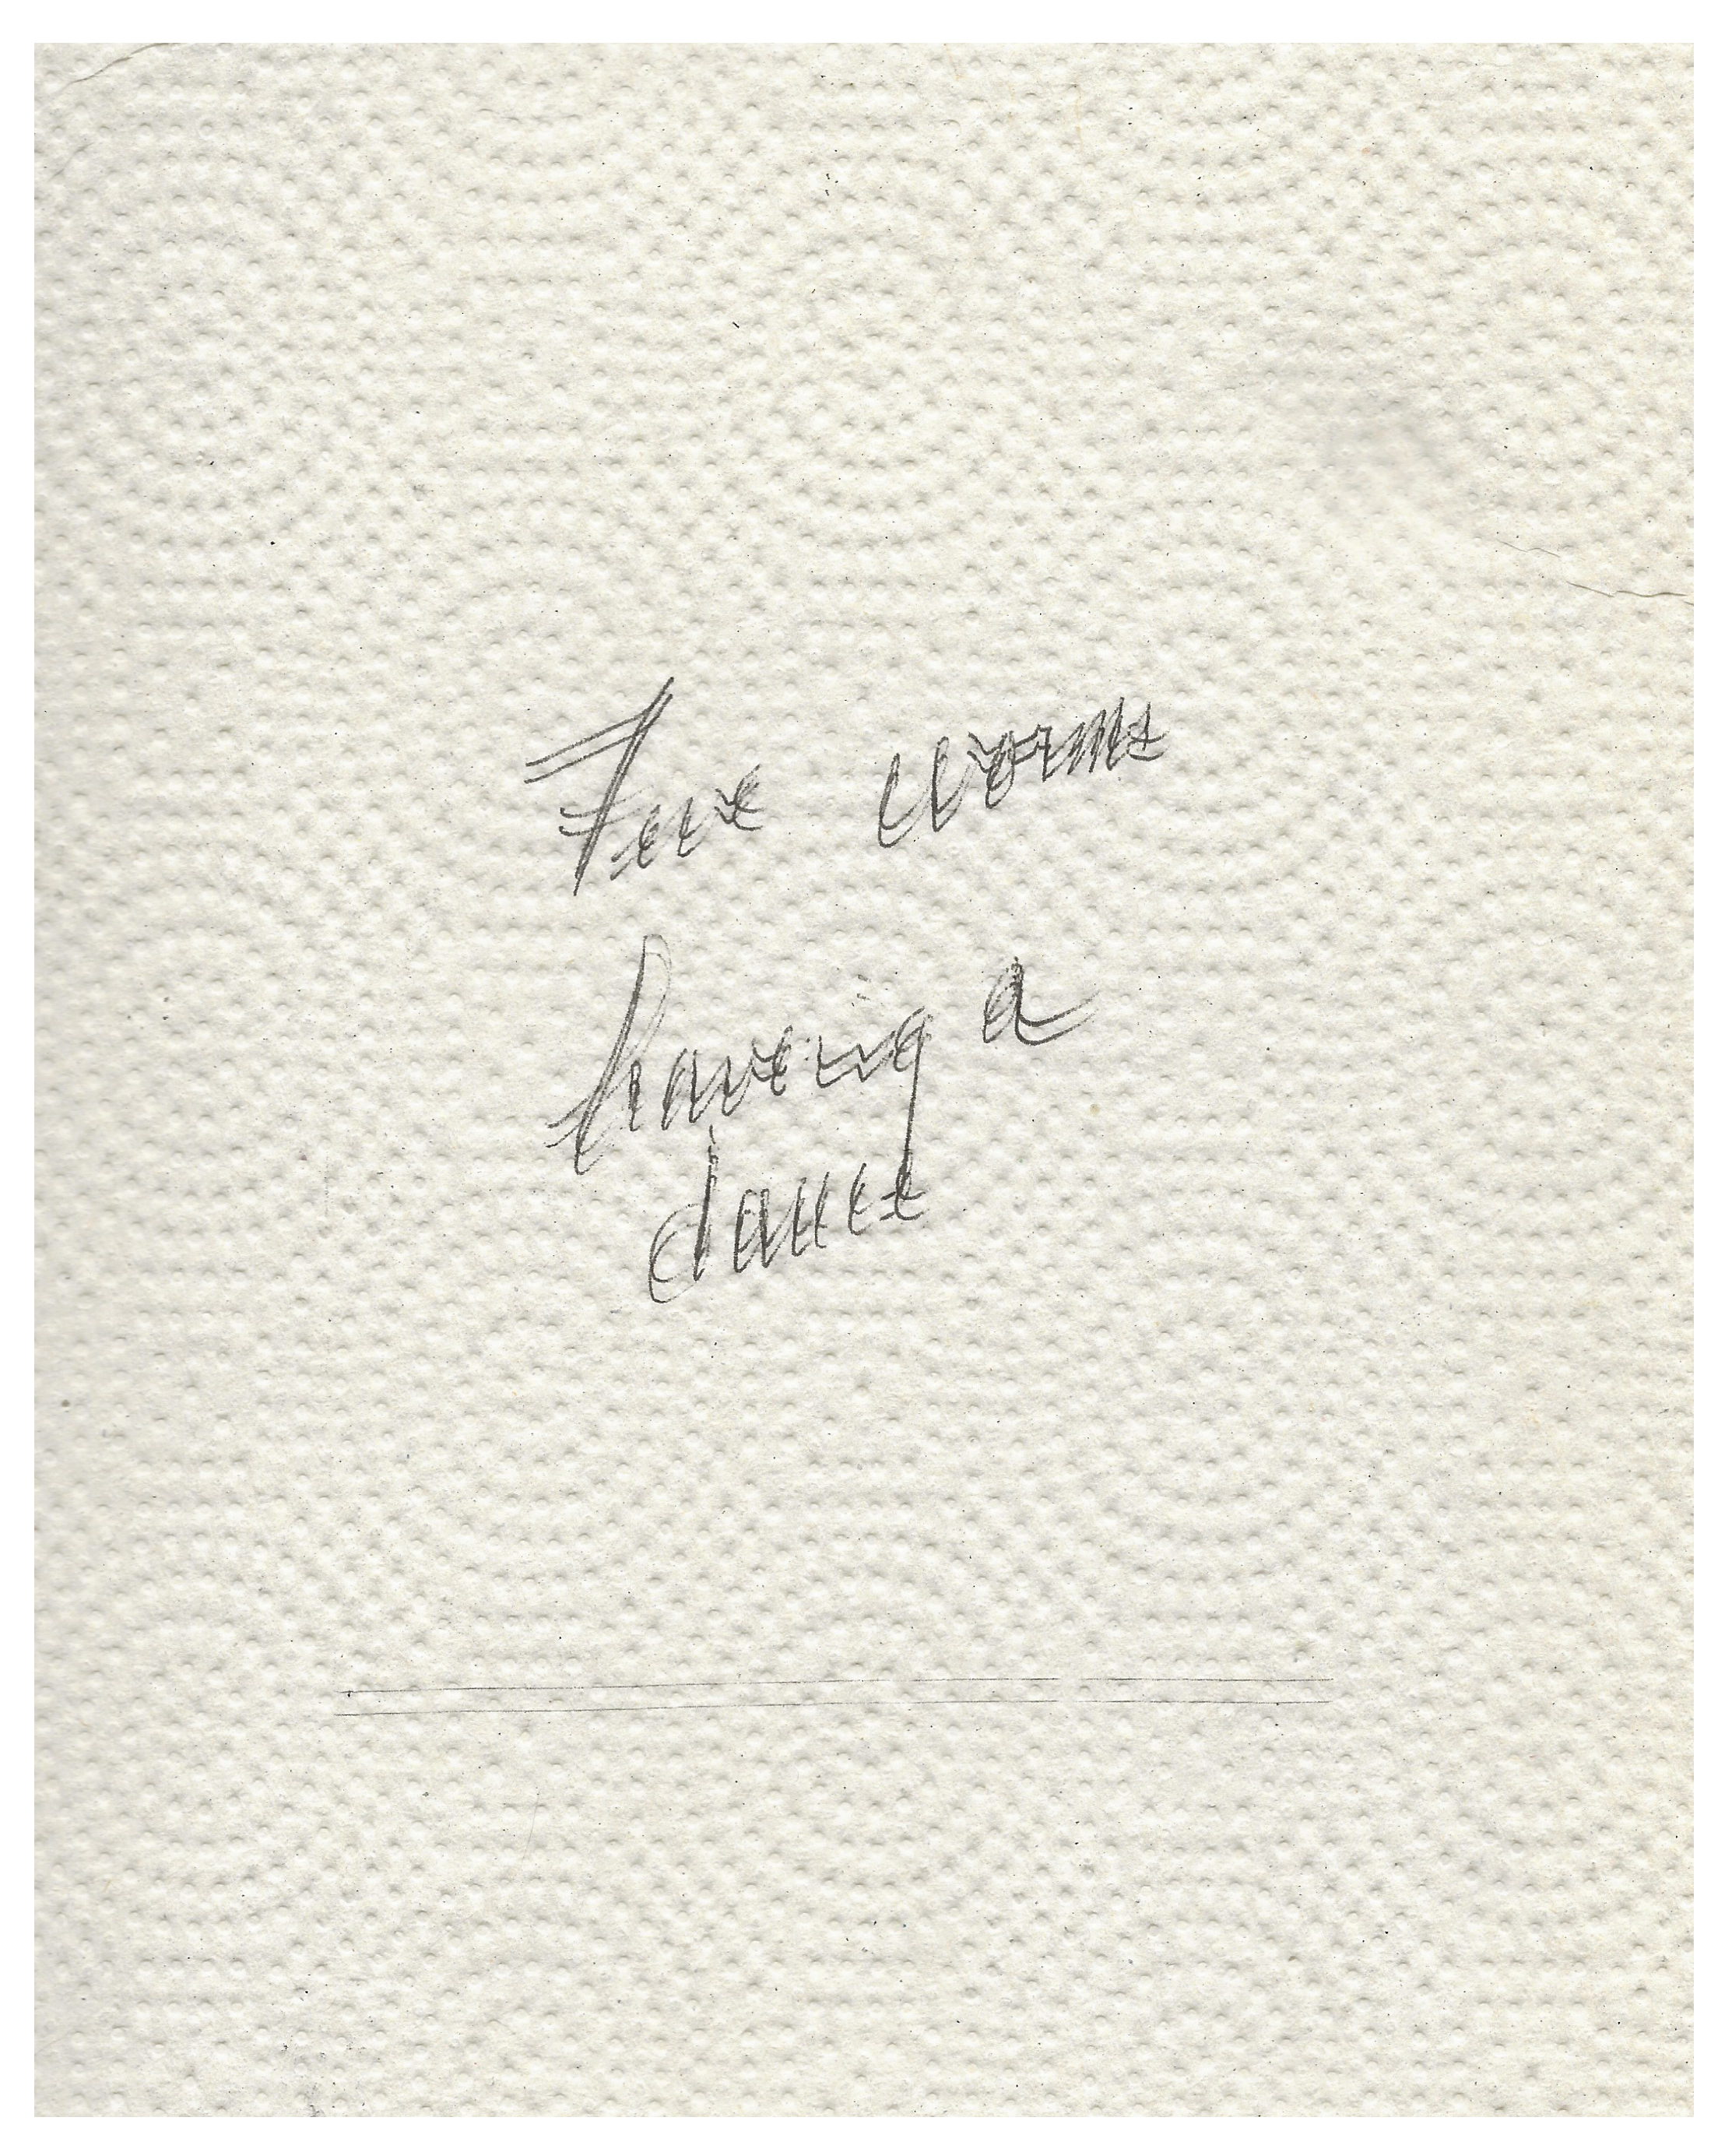 Five worms
having a
dance